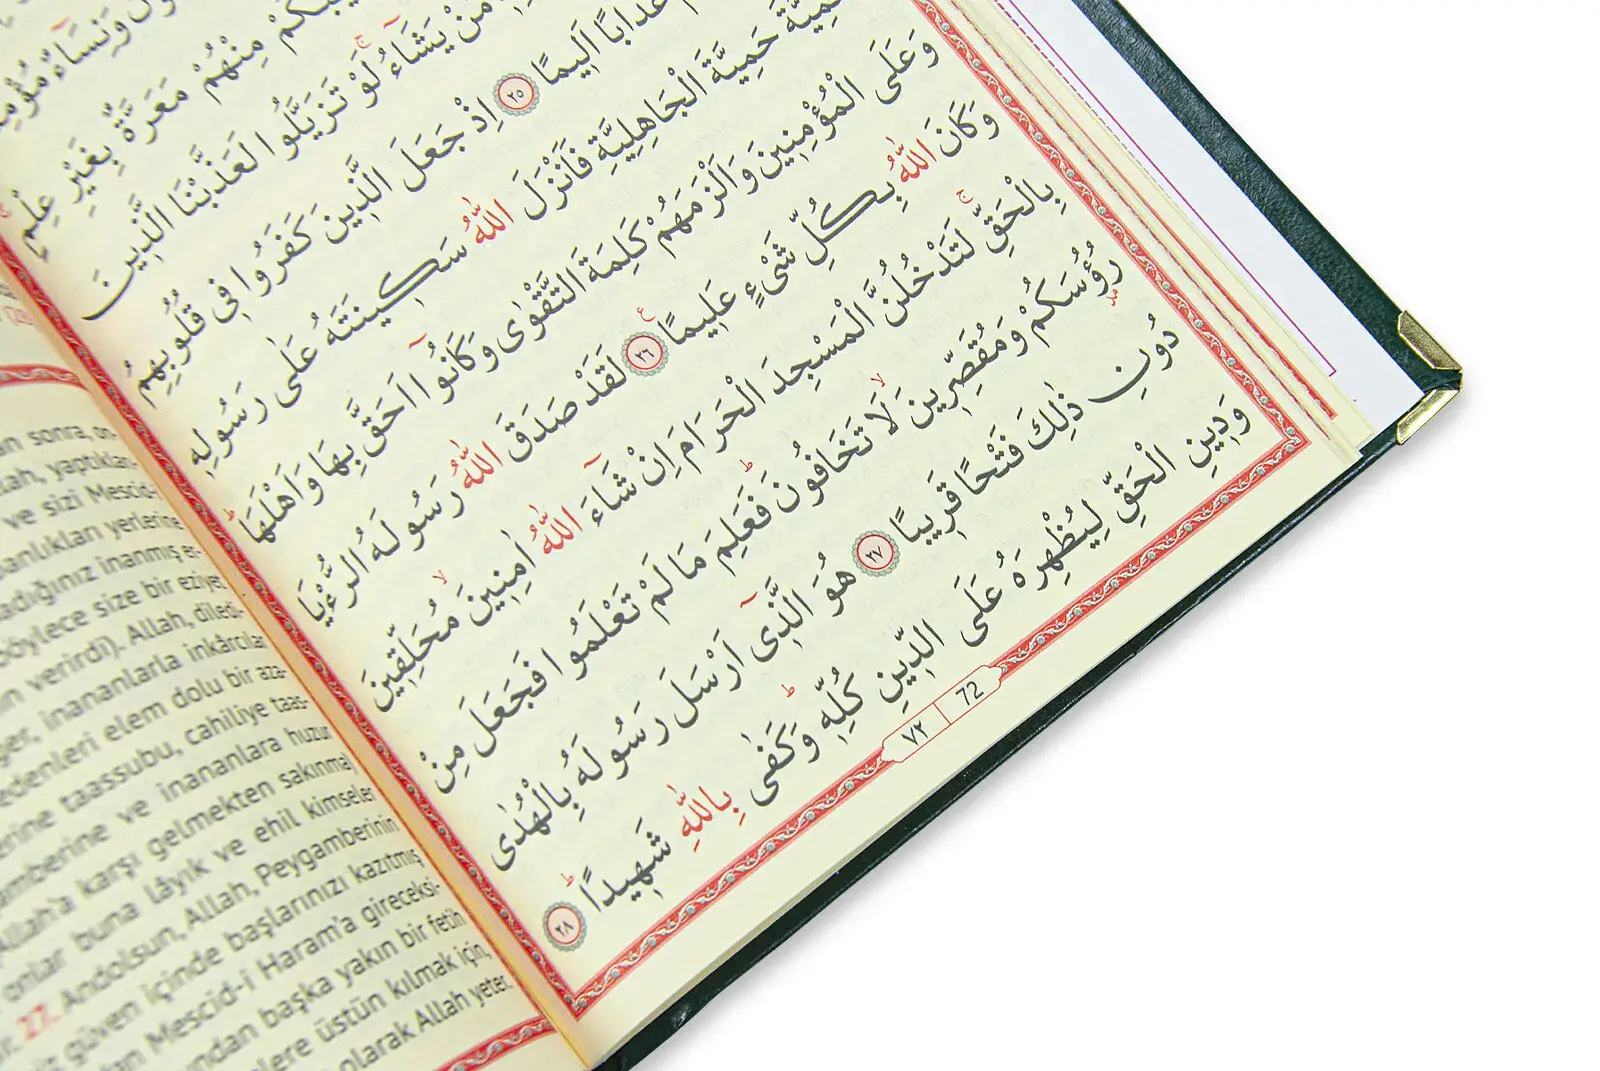 وَنِسَٓاءٌ
مِنْهُمْ مَعَرَّةٌ بِغَيْرِ عِلْمٍ
مَنْ يَشَٓاءُ لَوْ تَزَيَّلُوا لَعَذَّبْنَا الَّذِينَ
عَذَابًا اَلِيمًا ٢٥ اِذْ جَعَلَ الَّذِينَ كَفَرُوا فِى قُلُوبِهِمُ
حَمِيَّةَ الْجَاهِلِيَّةِ فَاَنْزَلَ اللّٰهُ سَكِينَتَهُ عَلٰى رَسُولِهِ
وَعَلَى الْمُؤْمِنِينَ وَاَلْزَمَهُمْ كَلِمَةَ التَّقْوٰى وَكَانُٓوا اَحَقَّ بِهَا وَاَهْلَهَا
وَكَانَ اللّٰهُ بِكُلِّ شَىْءٍ عَلِيمًا ٢٦ لَقَدْ صَدَقَ اللّٰهُ رَسُولَهُ الرُّءْيَا
بِالْحَقِّ لَتَدْخُلُنَّ الْمَسْجِدَ الْحَرَامَ اِنْ شَٓاءَ اللّٰهُ اٰمِنِينَ مُحَلِّقِينَ
رُؤُسَكُمْ وَمُقَصِّرِينَ لَا تَخَافُونَ فَعَلِمَ مَا لَمْ تَعْلَمُوا فَجَعَلَ مِنْ
دُونِ ذٰلِكَ فَتْحًا قَرِيبًا ٢٧ هُوَ الَّذِٓى اَرْسَلَ رَسُولَهُ بِالْهُدٰى
وَدِينِ الْحَقِّ لِيُظْهِرَهُ عَلَى الدِّينِ كُلِّهِ وَكَفٰى بِاللّٰهِ شَهِيدًا ٢٨
٧٢ 72
sonra, on-
yaptıkları-
ve sizi Mescid-i
yerlerine
inanmış er-
böylece size bir eziyet
verirdi). Allah, diledi-
inananlarla inkârcılar
edenleri elem dolu bir aza-
taassubu, cahiliye taas-
ve inananlara huzur
Allah'a karşı gelmekten sakınma)
onlar buna lâyık ve ehil kimseler
27. Andolsun, Allah, Peygamberinin
güven içinde başlarınızı kazıtmış
Mescid-i Haram'a gireceksi-
başka yakın bir fetih
üstün kılmak için,
olarak Allah yeter.